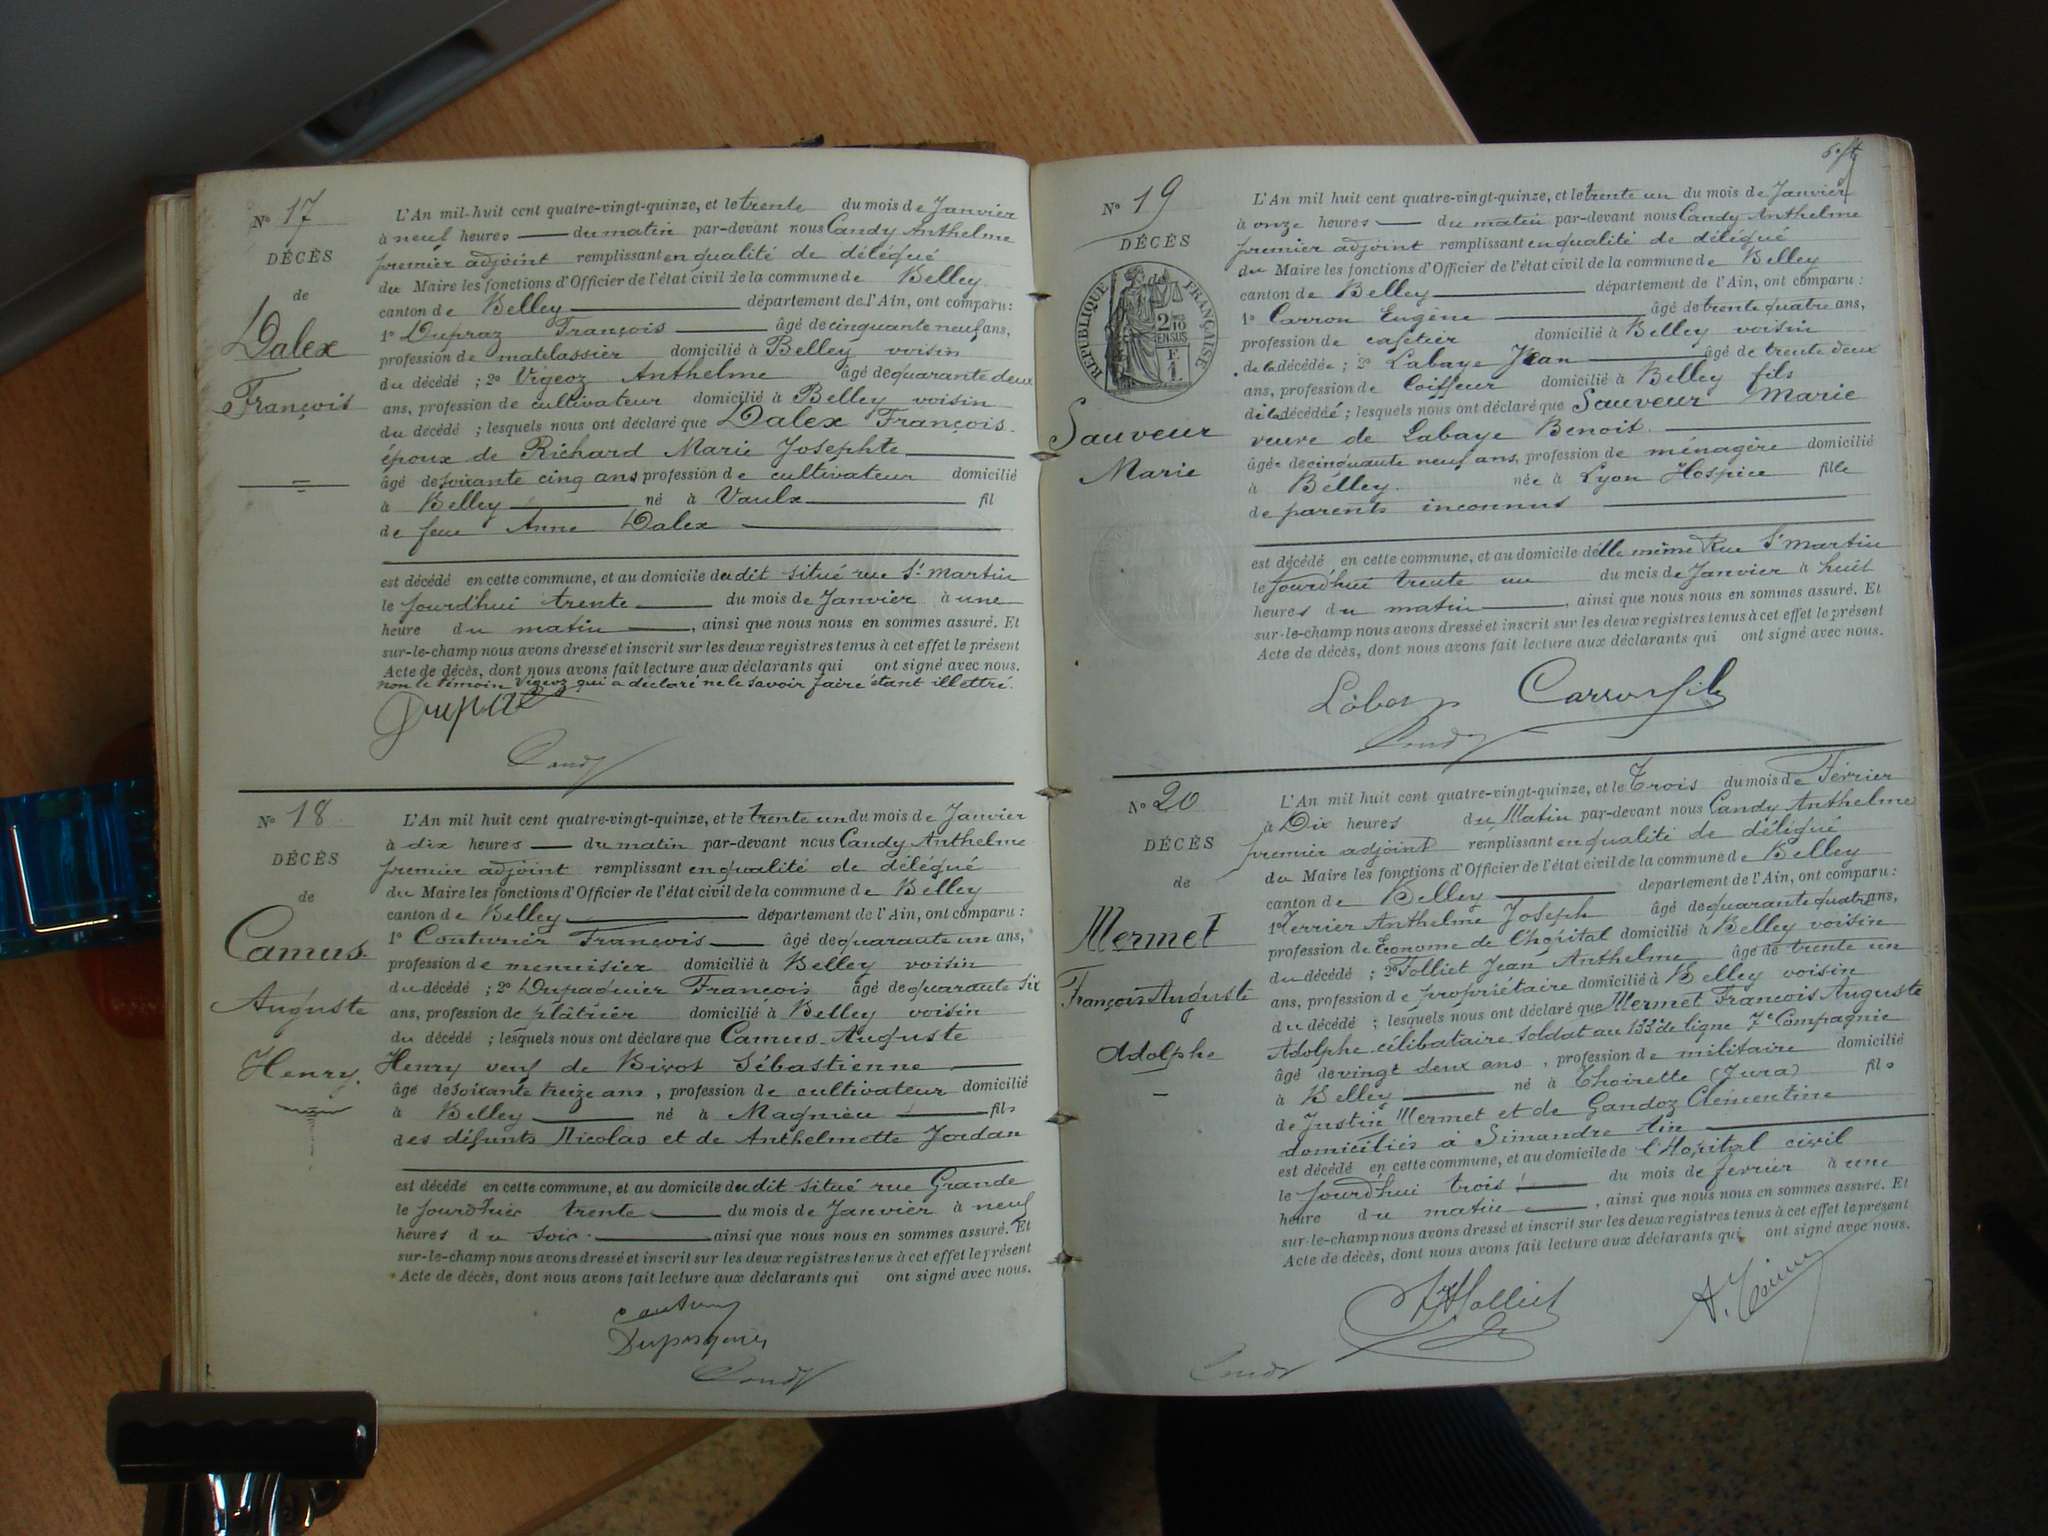 N° 17
DÉCÈS
de
Dalex
François
L'An mil huit cent quatre-vingt-quinze, et le trente du mois de Janvier
à neuf heures du matin par-devant nous Candy Anthelme
premier adjoint remplissant en qualité de délégué
du Maire les fonctions d'Officier de l'état civil de la commune de Belley
canton de Belley département de l'Ain, ont comparu :
1° Dupraz François âgé de cinquante neuf ans,
profession de matelassier domicilié à Belley voisin
du décédé ; 2° Vigeoz Anthelme âgé de quarante deux
ans, profession de cultivateur domicilié à Belley voisin
du décédé ; lesquels nous ont déclaré que Dalex François
époux de Richard Marie Josephte
âgé de soixante cinq ans profession de cultivateur domicilié
à Belley né à Vaulx fil
de feue Anne Dalex
est décédé en cette commune, et au domicile dudit situé rue St Martin
le jourd'hui trente du mois de Janvier à une
heure du matin , ainsi que nous nous en sommes assuré. Et
sur-le-champ nous avons dressé et inscrit sur les deux registres tenus à cet effet le présent
Acte de décès, dont nous avons fait lecture aux déclarants qui ont signé avec nous.
non le témoin Vigeoz qui a déclaré ne le savoir faire étant illettré.
Dupraz
Candy
N° 18
DÉCÈS
de
Camus
Auguste
Henry
L'An mil huit cent quatre-vingt-quinze, et le trente un du mois de Janvier
à dix heures du matin par-devant nous Candy Anthelme
premier adjoint remplissant en qualité de délégué
du Maire les fonctions d'Officier de l'état civil de la commune de Belley
canton de Belley département de l'Ain, ont comparu :
1° Couturier François âgé de quarante un ans,
profession de menuisier domicilié à Belley voisin
du décédé ; 2° Dupaquier François âgé de quarante six
ans, profession de plâtrier domicilié à Belley voisin
du décédé ; lesquels nous ont déclaré que Camus Auguste
Henry veuf de Sébastienne
âgé de soixante treize ans, profession de cultivateur domicilié
à Belley né à Magnieu fils
des défunts Nicolas et de Anthelmette Jordan
est décédé en cette commune, et au domicile dudit situé rue Grande
le jourd'hier trente du mois de Janvier à neuf
heures du soir ainsi que nous nous en sommes assuré. Et
sur-le-champ nous avons dressé et inscrit sur les deux registres tenus à cet effet le présent
Acte de décès, dont nous avons fait lecture aux déclarants qui ont signé avec nous.
Dupasquier
Candy
N° 19
DÉCÈS
de
RÉPUBLIQUE FRANÇAISE
2/10 EN SUS
F. 1
Sauveur
Marie
L'An mil huit cent quatre-vingt-quinze, et le trente un du mois de Janvier
à onze heures du matin par-devant nous Candy Anthelme
premier adjoint remplissant en qualité de délégué
du Maire les fonctions d'Officier de l'état civil de la commune de Belley
canton de Belley département de l'Ain, ont comparu :
1° Carron Eugène âgé de trente quatre ans,
profession de cafetier domicilié à Belley voisin
de la décédée ; 2° Labaye Jean âgé de trente deux
ans, profession de Coiffeur domicilié à Belley fils
de la décédée ; lesquels nous ont déclaré que Sauveur Marie
veuve de Labaye Benoit
âgée de cinquante neuf ans, profession de ménagère domicilié
à Belley née à Lyon Hospice fille
de parents inconnus
est décédé en cette commune, et au domicile d'elle même Rue St Martin
le jourd'hui trente un du mois de Janvier à huit
heures du matin , ainsi que nous nous en sommes assuré. Et
sur-le-champ nous avons dressé et inscrit sur les deux registres tenus à cet effet le présent
Acte de décès, dont nous avons fait lecture aux déclarants qui ont signé avec nous.
Carron fils
Candy
N° 20
DÉCÈS
de
Mermet
François Auguste
Adolphe
L'An mil huit cent quatre-vingt-quinze, et le Trois du mois de Février
à Dix heures du Matin par-devant nous Candy Anthelme
premier adjoint remplissant en qualité de délégué
du Maire les fonctions d'Officier de l'état civil de la commune de Belley
canton de Belley département de l'Ain, ont comparu :
1° Terrier Anthelme Joseph âgé de quarante quatre ans,
profession de Econome de l'hôpital domicilié à Belley voisin
du décédé ; 2° Tolliet Jean Anthelme âgé de trente un
ans, profession de propriétaire domicilié à Belley voisin
du décédé ; lesquels nous ont déclaré que Mermet François Auguste
Adolphe célibataire soldat au 133e de ligne 7e Compagnie
âgé de vingt deux ans , profession de militaire domicilié
à Belley né à Thoirette (Jura) fils
de Justin Mermet et de Gandoz Clémentine
domiciliés à Simandre Ain
est décédé en cette commune, et au domicile de l'Hôpital civil
le jourd'hui trois du mois de février à une
heure du matin , ainsi que nous nous en sommes assuré. Et
sur-le-champ nous avons dressé et inscrit sur les deux registres tenus à cet effet le présent
Acte de décès, dont nous avons fait lecture aux déclarants qui ont signé avec nous.
Candy